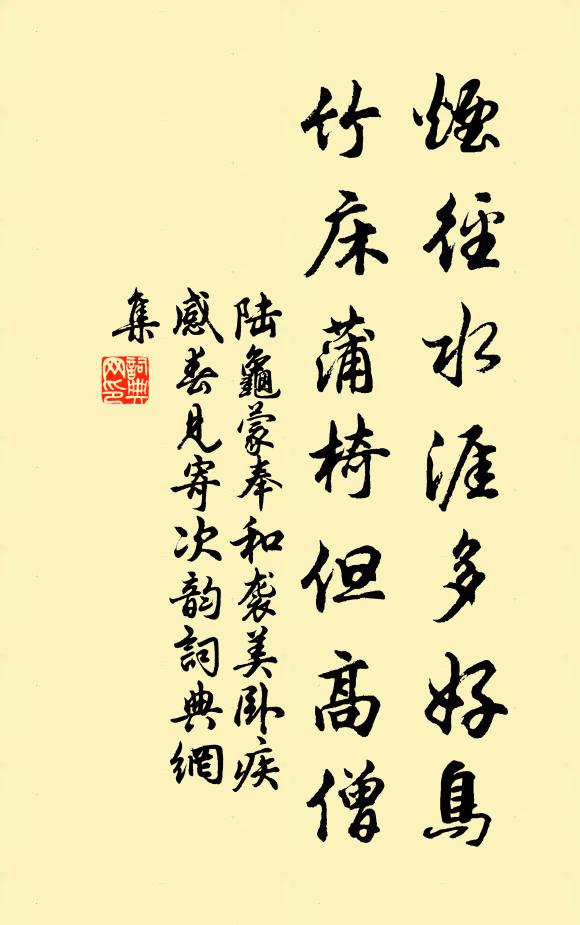 煙徑水涯多好鳥
竹床蒲椅但高僧
陆龜蒙奉和袭美卧疾
感春見寄次韵詞典網
集
詞典
网印